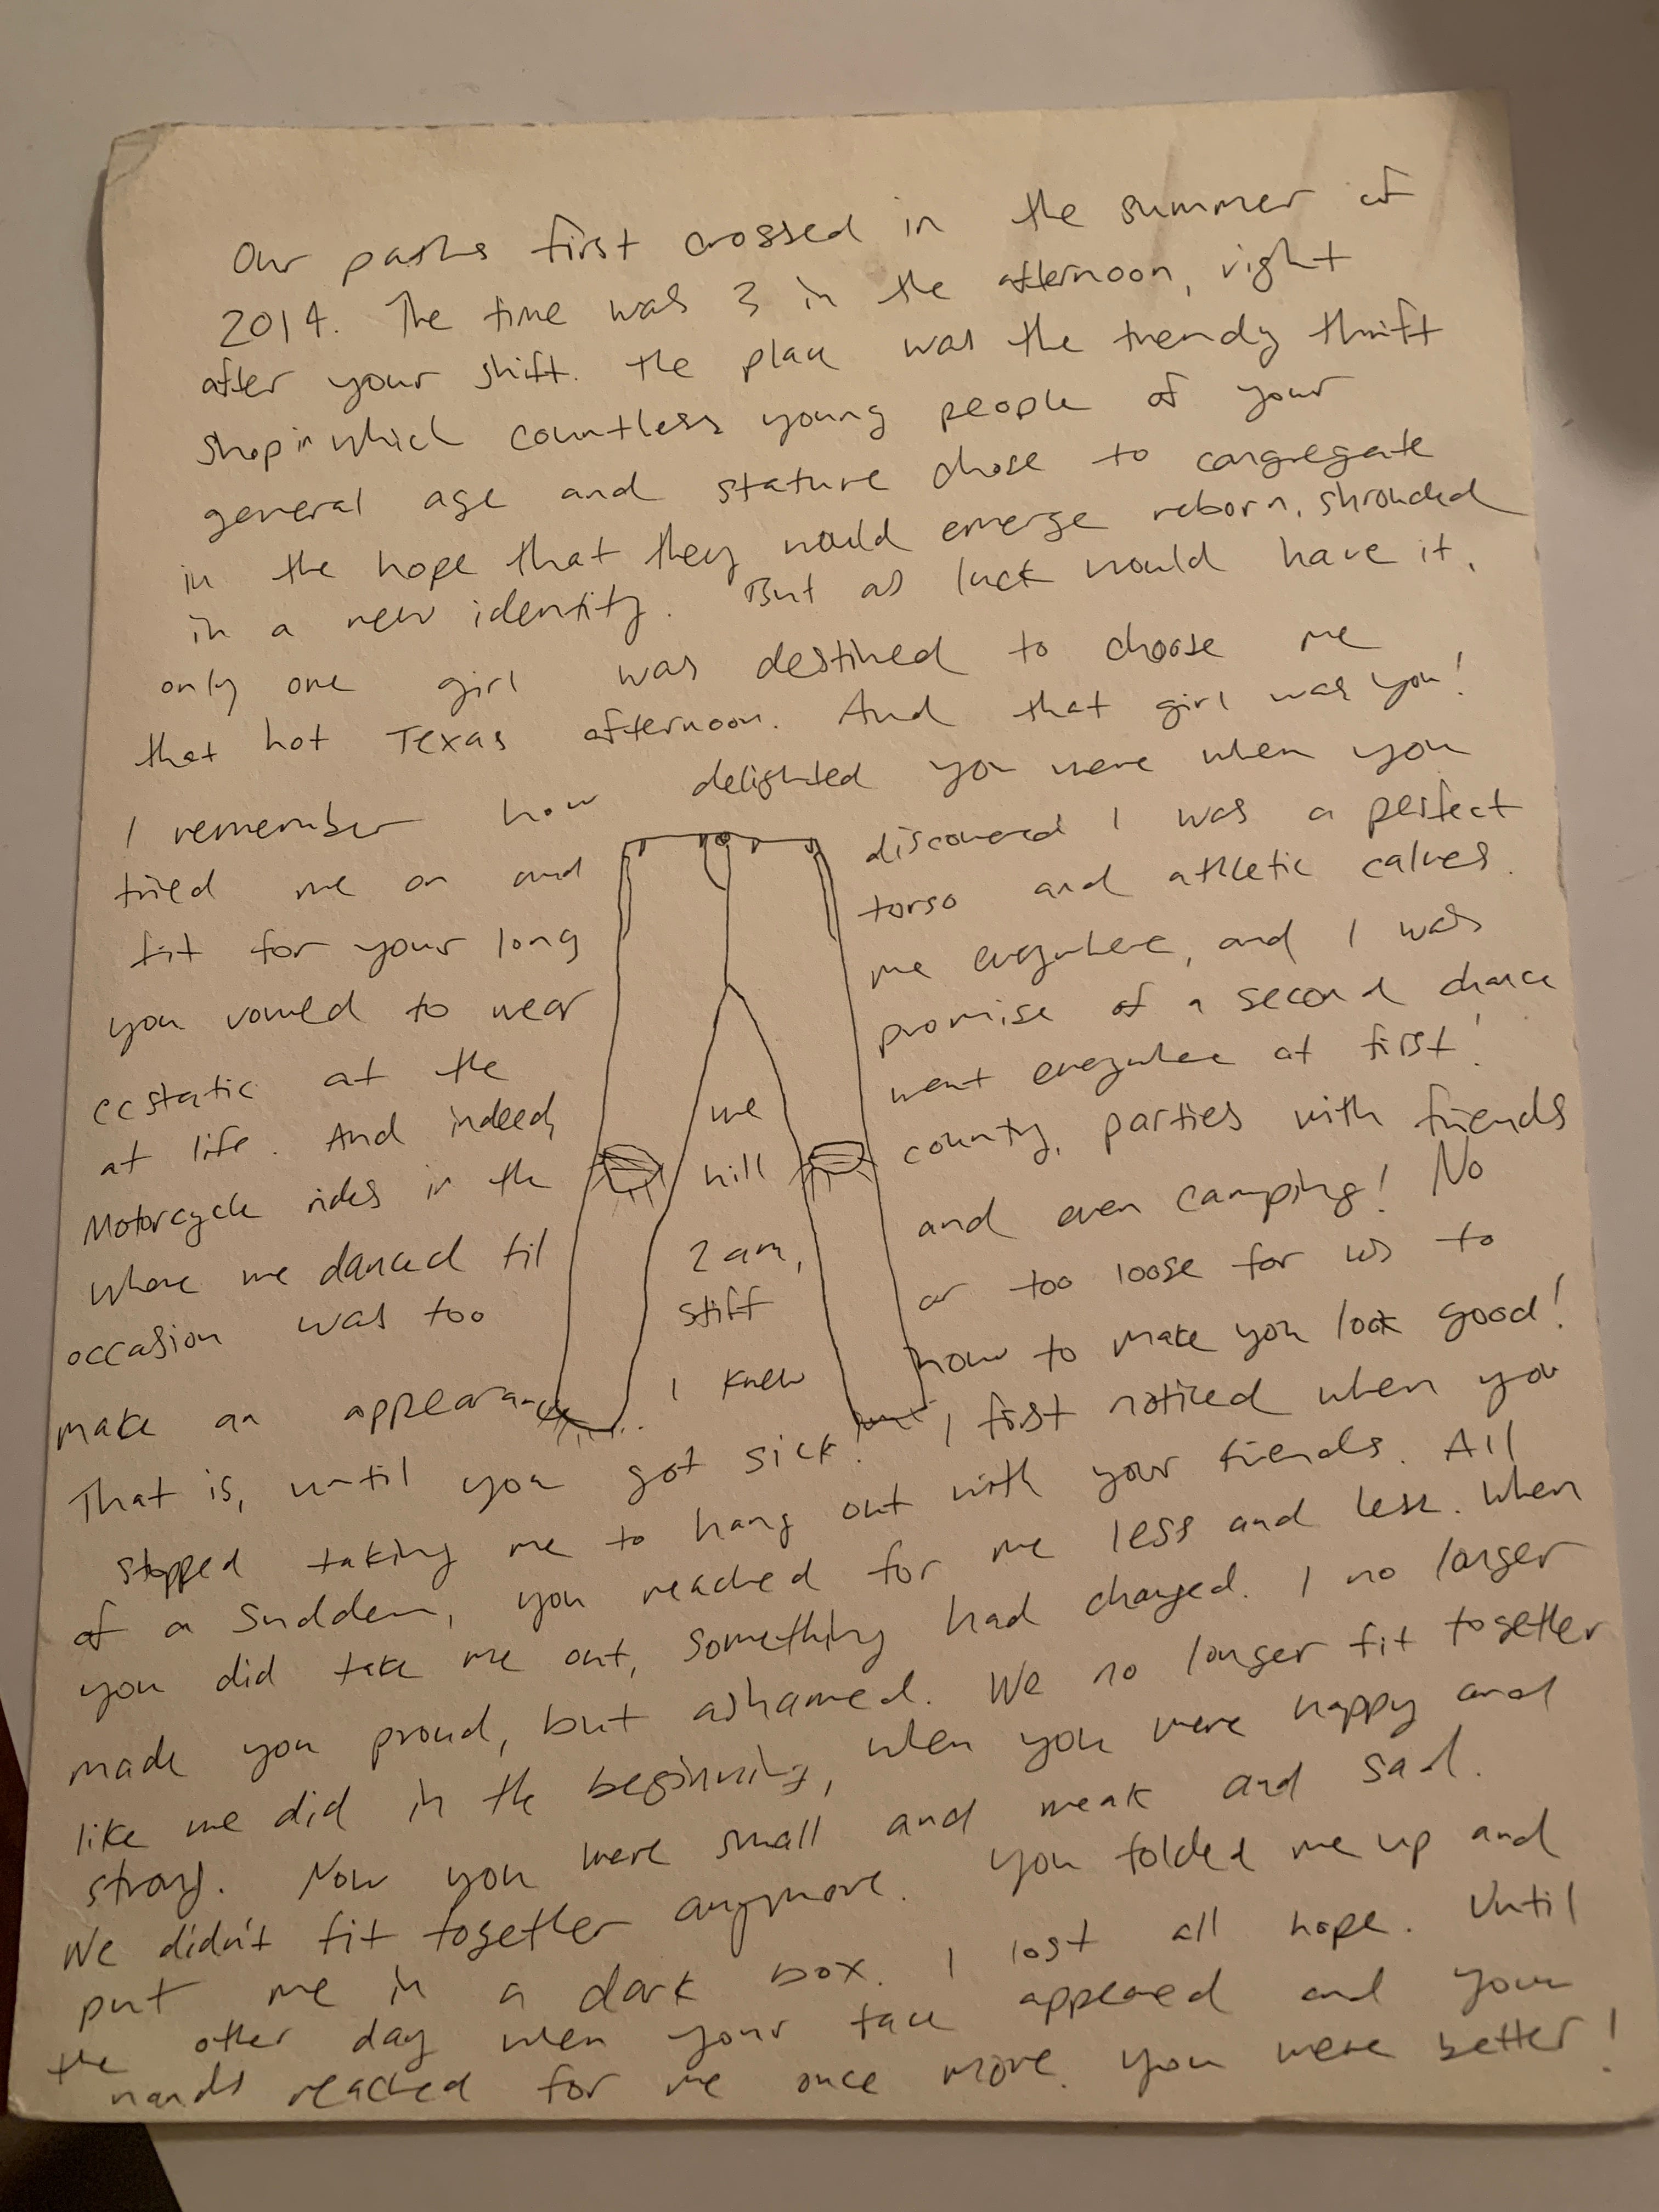 Our paths first crossed in the summer of
2014. The time was 3 in the afternoon, right
after your shift. The place was the trendy thrift
shop in which countless young people of your
general age and stature chose to congregate
in the hope that they would emerge reborn, shrouded
in a new identity. But as luck would have it,
only one girl was destined to choose me
that hot Texas afternoon. And that girl was you!
I remember how delighted you were when you
tried me on and discovered I was a perfect
fit for your long torso and athletic calves.
you vowed to wear me everywhere, and I was
ecstatic at the promise of a second chance
at life. And indeed, we went everywhere at first!
Motorcycle rides in the hill county, parties with friends
where we danced til 2 am, and even camping! No
occasion was too stiff or too loose for us to
make an appearance... I knew how to make you look good!
That is, until you got sick! I first noticed when you
stopped taking me to hang out with your friends. All
of a sudden, you reached for me less and less. When
you did take me out, something had changed. I no longer
made you proud, but ashamed. We no longer fit together
like we did in the beginning, when you were happy and
strong. Now you were small and weak and sad.
We didn't fit together anymore. You folded me up and
put me in a dark box. I lost all hope. Until
the other day when your face appeared and your
hands reached for me once more. you were better!